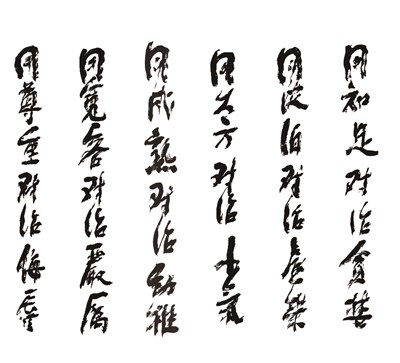 用知足对治貪婪
用淡泊对治虛榮
用大方对治小氣
用成熟对治幼稚
用寬容对治嚴厲
用尊重对治侮辱